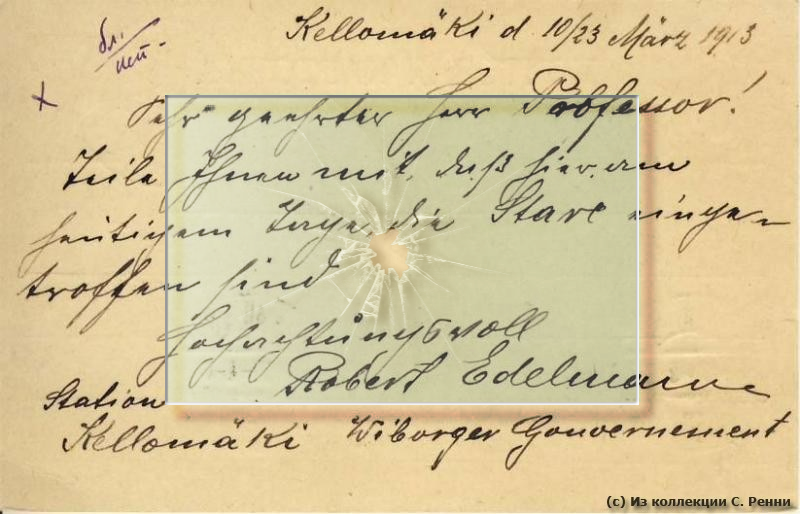 Kellomäki d. 10/23 März 1913
бл.
x
Sehr geehrter Herr Professor!
Teile Ihnen mit, daß hier am
heutigem Tage, die Stare einge-
troffen sind
Hochachtungsvoll
Robert Edelmann
Station
Kellomäki Wiborger Gouvernement
(c) Из коллекции С. Ренни